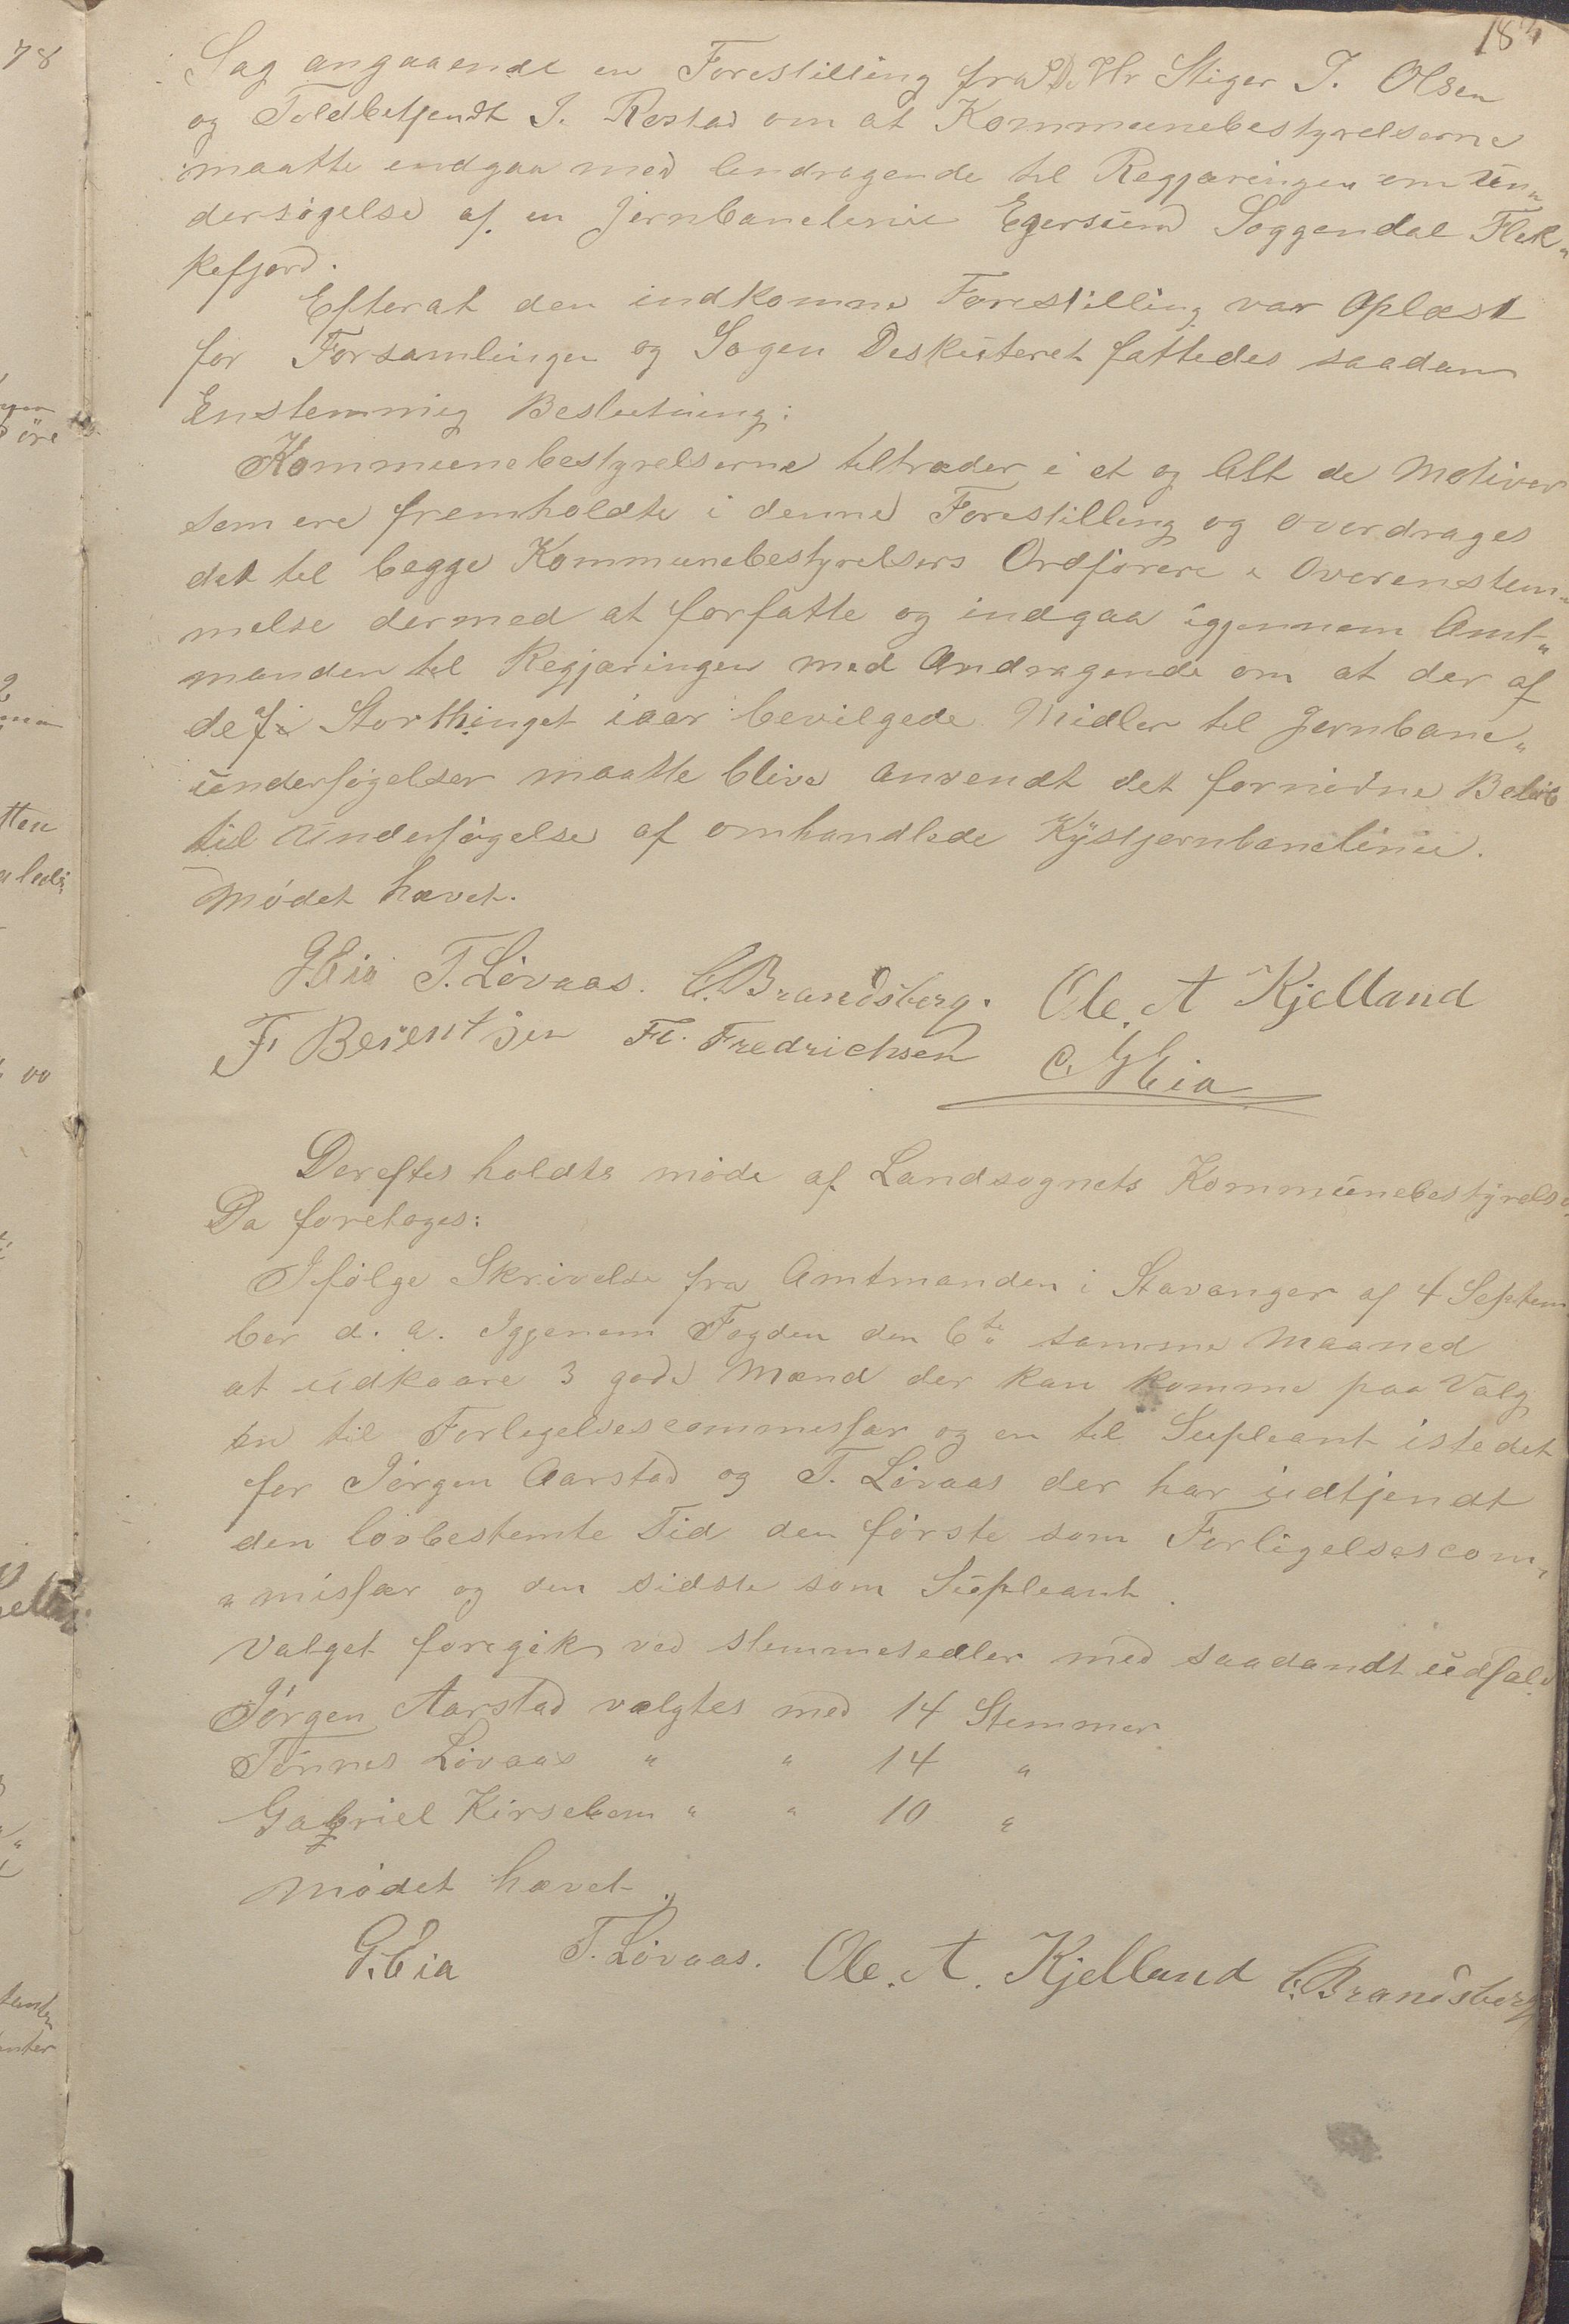 Sag angaaende en Forestilling fra DHr Stiger J. Olsen
og Toldbetjendt J. Restad om at Kommunebestyrelserne
maatte indgaa med Andragende til Regjæringen om Un„
dersøgelse af en Jernbanelinie Egersund Soggendal Flek„
kefjord.
Efterat den indkomne Forestilling var Oplæst
for Forsamlingen og Sagen Deskuteret fattedes saadan
Enstemmig Beslutning:
Kommunebestyrelserne tiltræder i et og Alt de Motiver
som ere fremholdte i denne Forestilling og overdrages
det til begge Kommunebestyrelsers Ordførere i Overenstem„
melse dermed at forfatte og indgaa igjennem Amt„
manden til Regjæringen med Andragende om at der af
de af Storthinget iaar bevilgede Midler til Jernbane„
undersøgelser maatte blive anvendt det fornødne Beløb
til Undersøgelse af omhandlede Kystjernbanelinie.
Mødet hævet.
G Eia T. Løvaas. C. Brandsberg. Ole. A Kjelland
F Berentsen Fr. Fredrichsen C. M Eia
Derefter holdts møde af Landsognets Kommunebestyrelse
Da foretoges:
Ifølge Skrivelse fra Amtmanden i Stavanger af 4 Septem
ber d. a. Igjenem Fogden den 6te samme Maaned
at udkaare 3 gode Mænd der kan komme paa Valg
en til Forligelsescommissær og en til Supleant istedet
for Jørgen Aarstad og T. Løvaas der har udtjendt
den lovbestemte Tid den første som Forligelsescom„
„missær og den sidste som Supleant.
Valget foregik ved stemmesedler med saadandt udfald
Jørgen Aarstad valgtes med 14 Stemmer
Tønnes Løvaas " " 14 "
Gabriel Kirsebom " " 10 "
Mødet hævet
G. Eia T. Løvaas. Ole. A. Kjelland C. Brandsberg